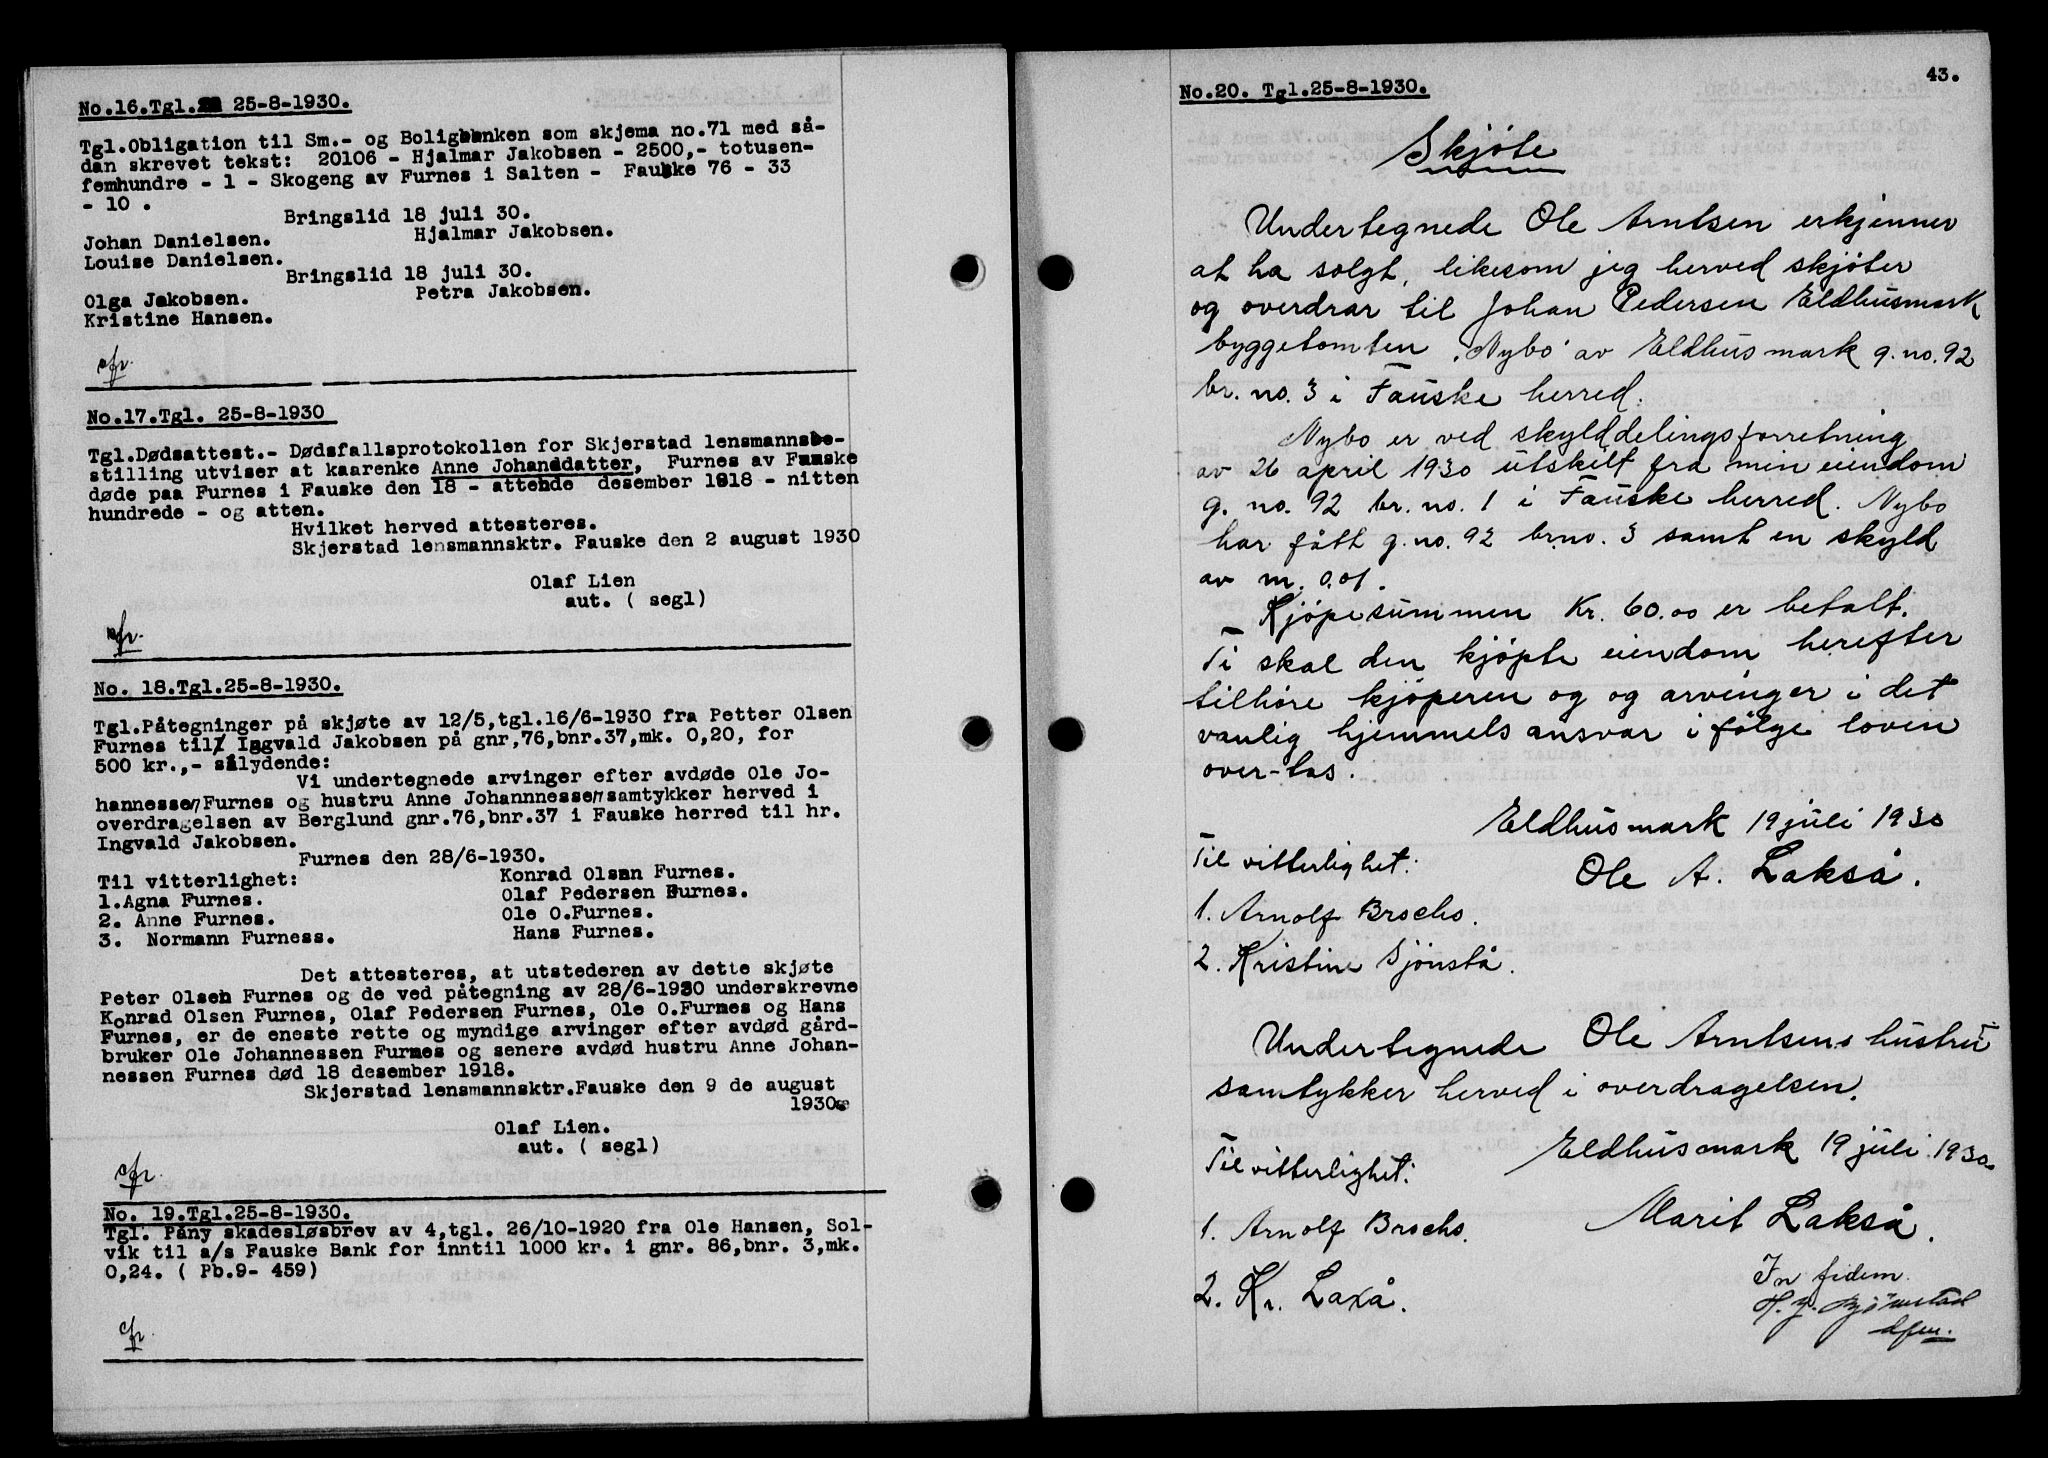 No.16.Tgl. 25-8-1930.
Tgl.Obligation til Sm.- og Boligbanken som skjema no.71 med så-
dan skrevet tekst: 20106 - Hjalmar Jakobsen - 2500,- totusen-
femhundre - 1 - Skogeng av Furnes i Salten - Fauske 76 - 33
- 10 .
Bringslid 18 juli 30.
Johan Danielsen. Hjalmar Jakobsen.
Louise Danielsen.
Bringslid 18 juli 30.
Olga Jakobsen. Petra Jakobsen.
Kristine Hansen.
No.17.Tgl. 25-8-1930
Tgl.Dødsattest.- Dødsfallsprotokollen for Skjerstad lensmannsbe-
stilling utviser at kaarenke Anne Johanddatter, Furnes av Fauske
døde paa Furnes i Fauske den 18 - attende desember 1918 - nitten
hundrede - og atten.
Hvilket herved attesteres.
Skjerstad lensmannsktr. Fauske den 2 august 1930
Olaf Lien
aut. ( segl)
No. 18.Tgl.25-8-1930.
Tgl.Påtegninger på skjøte av 12/5,tgl.16/6-1930 fra Petter Olsen
Furnes til Ingvald Jakobsen på gnr,76,bnr.37,mk. 0,20, for
500 kr.,- sålydende:
Vi undertegnede arvinger efter avdøde Ole Jo-
hannessen Furnes og hustru Anne Johannnessen samtykker herved i
overdragelsen av Berglund gnr.76,bnr.37 i Fauske herred til hr.
Ingvald Jakobsen.
Furnes den 28/6-1930.
Til vitterlighet: Konrad Olsen Furnes.
1.Agna Furnes. Olaf Pedersen Furnes.
2. Anne Furnes. Ole O.Furnes.
3. Normann Furness. Hans Furnes.
Det attesteres, at utstederen av dette skjøte
Peter Olsen Furnes og de ved påtegning av 28/6-1930 underskrevne
Konrad Olsen Furnes, Olaf Pedersen Furnes, Ole O.Furnes og Hans
Furnes, er de eneste rette og myndige arvinger efter avdød gård-
bruker Ole Johannessen Furnes og senere avdød hustru Anne Johan-
nessen Furnes død 18 desember 1918.
Skjerstad lensmannsktr.Fauske den 9 de august
1930
Olaf Lien.
aut. ( segl)
No. 19.Tgl.25-8-1930.
Tgl. Påny skadesløsbrev av 4,tgl. 26/10-1920 fra Ole Hansen, Sol-
vik til a/s Fauske Bank for inntil 1000 kr. i gnr. 86,bnr. 3,mk.
0,24. ( Pb.9- 459)
43.
No.20. Tgl.25-8-1930.
Skjöte
Undertegnede Ole Arntsen erkjenner
at ha solgt, likesom jeg herved skjöter
og overdrar til Johan Pedersen Eldhusmark
byggetomten "Nybo" av Eldhusmark g.no.92
br. no. 3 i Fauske herred.
Nybo er ved skylddelingsforretning
av 26 april 1930 utskilt fra min eiendom
g. no. 92 br. no. 1 i Fauske herred. Nybo
har fått g.no.92 br.no. 3 samt en skyld
av m. 0.01.
Kjöpesummen Kr. 60.00 er betalt.
Ti skal den kjöpte eiendom herefter
tilhöre kjöperen og og arvinger i det
vanlig hjemmelsansvar i fölge loven
over-tas.
Eldhusmark 19 juli 1930
Til vitterlighet: Ole A. Lakså.
1. Arnolf Brochs.
2. Kristine Sjönstå.
Undertegnede Ole Arntsens hustru
samtykker herved i overdragelsen.
Eldhusmark 19 juli 1930.
Til vitterlighet:
1. Arnolf Brochs. Marit Lakså.
2. Kr. Laxå.
In fidem.